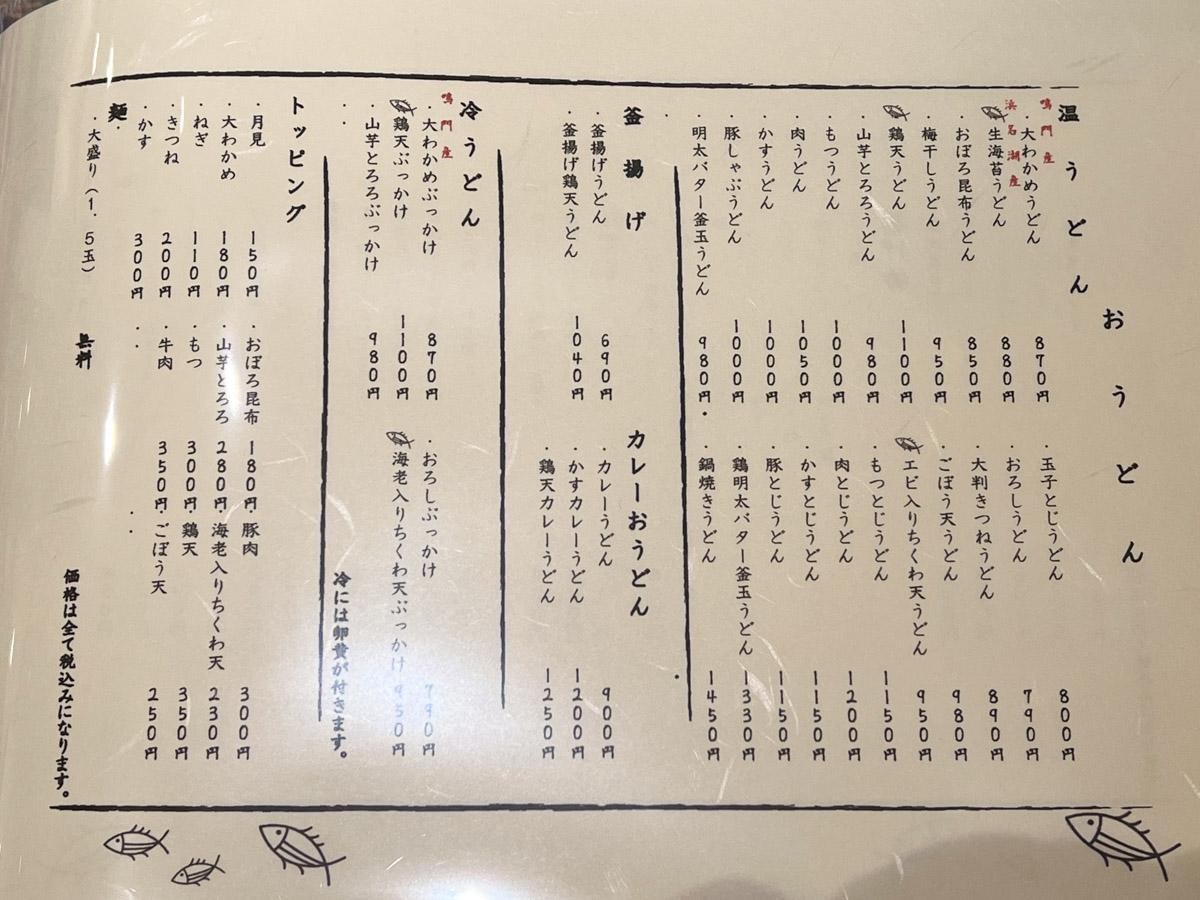 おうどん
温うどん
鳴門産
・大わかめうどん 870円
浜名湖産
・生海苔うどん 880円
・おぼろ昆布うどん 850円
・梅干しうどん 950円
・鶏天うどん 1100円
・山芋とろろうどん 980円
・もつうどん 1000円
・肉うどん 1050円
・かすうどん 1000円
・豚しゃぶうどん 1000円
・明太バター釜玉うどん 980円
・玉子とじうどん 800円
・おろしうどん 790円
・大判きつねうどん 890円
・ごぼう天うどん 980円
・エビ入りちくわ天うどん 950円
・もつとじうどん 1150円
・肉とじうどん 1200円
・かすとじうどん 1150円
・豚とじうどん 1150円
・鶏明太バター釜玉うどん 1330円
・鍋焼きうどん 1450円
釜揚げ
・釜揚げうどん 690円
・釜揚げ鶏天うどん 1040円
カレーおうどん
・カレーうどん 900円
・かすカレーうどん 1200円
・鶏天カレーうどん 1250円
冷うどん
鳴門産
・大わかめぶっかけ 870円
・鶏天ぶっかけ 1100円
・山芋とろろぶっかけ 980円
・おろしぶっかけ 790円
・海老入りちくわ天ぶっかけ 950円
冷には卵黄が付きます。
トッピング
・月見 150円
・大わかめ 180円
・ねぎ 110円
・きつね 200円
・かす 300円
・おぼろ昆布 180円
・山芋とろろ 280円
・もつ 300円
・牛肉 350円
・豚肉 300円
・海老入りちくわ天 230円
・鶏天 350円
・ごぼう天 250円
麺
・大盛り（1.5玉） 無料
価格は全て税込みになります。